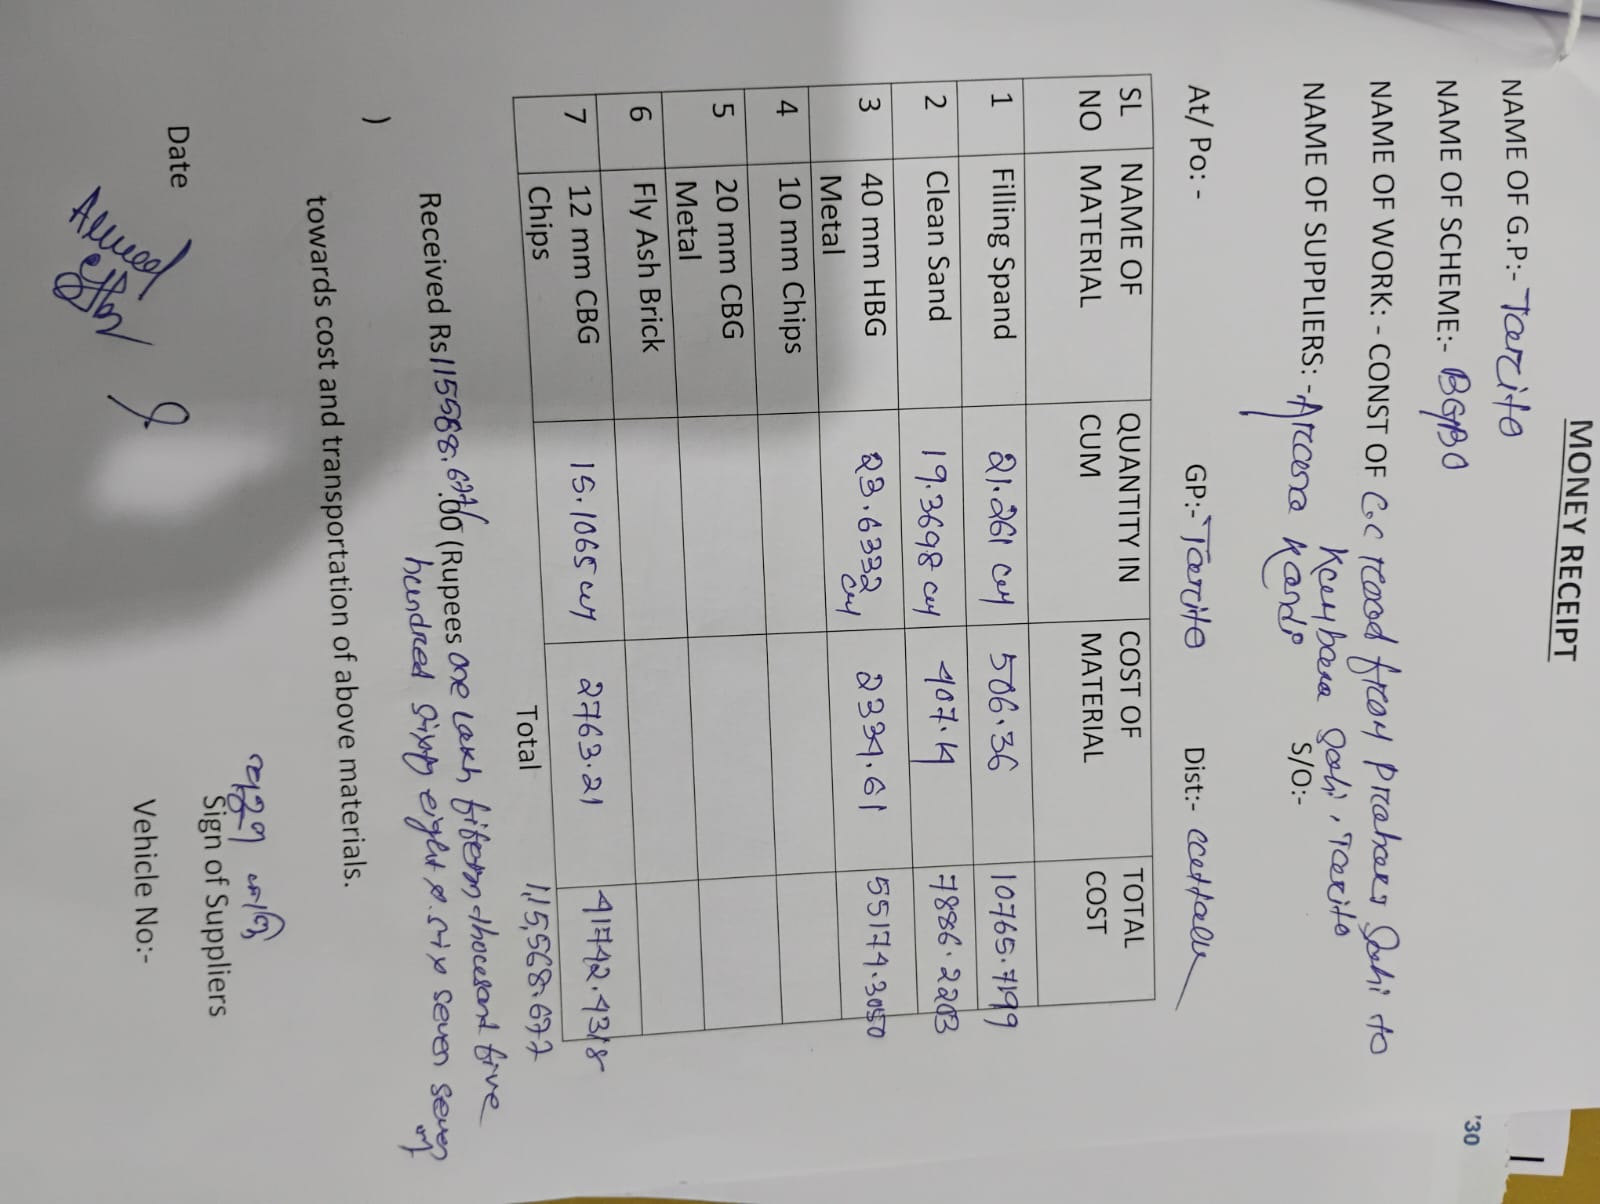 MONEY RECEIPT
NAME OF G.P:- Tarcito
NAME OF SCHEME:- BGBO
NAME OF WORK: - CONST OF C.C road from Praharaj Sahi to
Sahi, Tarcito
NAME OF SUPPLIERS: - S/O:-
At/ Po: - GP:- Tarcito Dist:-
SL NO NAME OF MATERIAL QUANTITY IN CUM COST OF MATERIAL TOTAL COST
1 Filling Spand 21.261 cum 506.36 10765.7199
2 Clean Sand 19.3698 cum 407.14 7886.2203
3 40 mm HBG Metal 23.6332 cum 2334.61 55174.3050
4 10 mm Chips
5 20 mm CBG Metal
6 Fly Ash Brick
7 12 mm CBG Chips 15.1065 cum 2763.21 41742.4318
Total 1,15,568.677
Received Rs 115568.677/ .00 (Rupees one Lakh fifteen thousand five
hundred sixty eight seven seven
)
towards cost and transportation of above materials.
Sign of Suppliers
Date
Vehicle No:-
'30